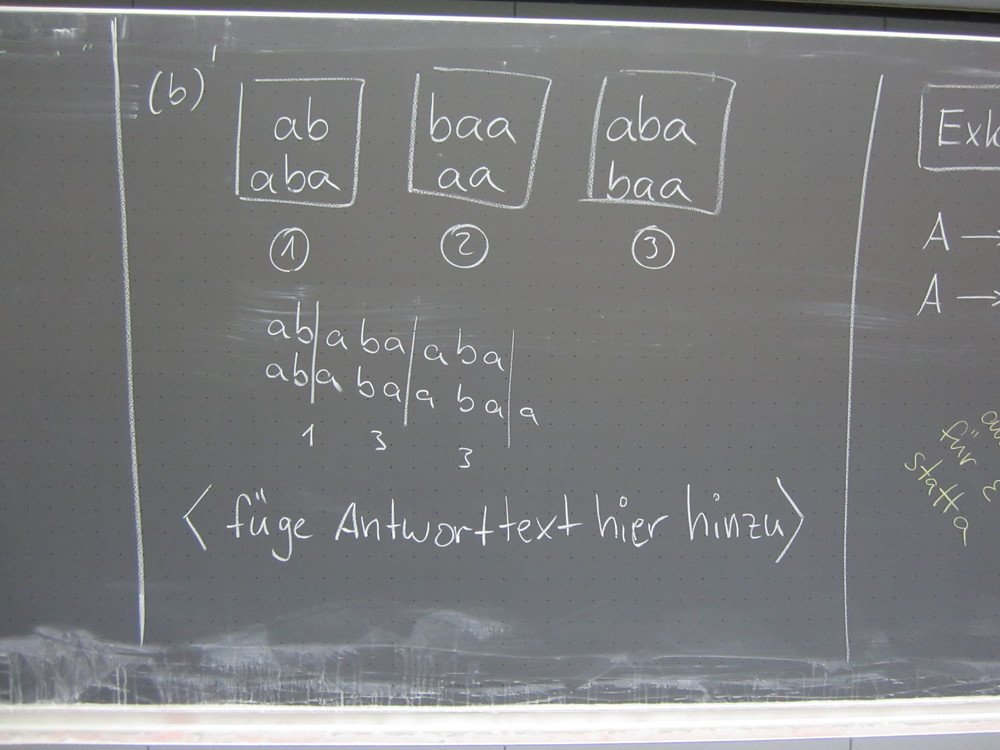 (b)
ab baa aba
aba aa baa
1 2 3
ab|aba|aba|
ab|aba|aba|a
1 3 3
< füge Antworttext hier hinzu >
A →
A →
für
statt